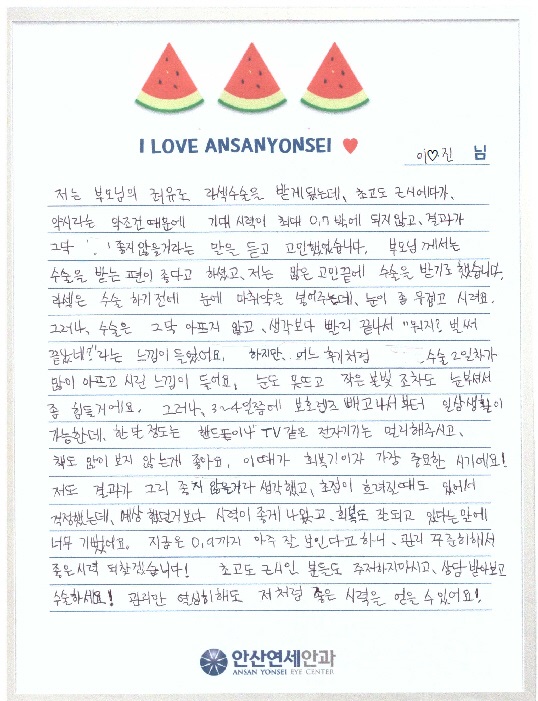 I LOVE ANSANYONSEI
이♡진 님
저는 부모님의 권유로 라섹수술을 받게됬는데, 초고도 근시에다가,
약시라는 악조건 때문에 기대시력이 최대 0.7 밖에 되지않고, 결과가
그닥 좋지 않을거라는 말을 듣고 고민했었습니다. 부모님께서는
수술을 받는 편이 좋다고 하셨고, 저는 많은 고민끝에 수술을 받기로 했습니다.
라섹은 수술 하기전에 눈에 마취약을 넣어주는데, 눈이 좀 무겁고 시려요.
그러나, 수술은 그닥 아프지 않고, 생각보다 빨리 끝나서 "뭐지? 벌써
끝났네?"라는 느낌이 들었어요. 하지만, 어느 후기처럼 수술 2일차가
많이 아프고 시린 느낌이 들어요, 눈도 못뜨고 작은 불빛 조차도 눈부셔서
좀 힘들거에요. 그러나, 3~4일쯤에 보호렌즈 빼고나서부터 일상생활이
가능한데, 한 달 정도는 핸드폰이나 TV같은 전자기기는 멀리해주시고,
책도 많이 보지 않는게 좋아요, 이때가 회복기이자 가장 중요한 시기에요!
저도 결과가 그리 좋지 않을거라 생각했고, 초점이 흐려질때도 있어서
걱정했는데, 예상 했던거보다 시력이 좋게 나왔고, 회복도 잘되고 있다는 말에
너무 기뻤어요. 지금은 0.9까지 아주 잘 보인다고 하니, 관리 꾸준히해서
좋은시력 되찾겠습니다! 초고도 근시인 분들도 주저하지마시고, 상담 받아보고
수술하세요! 관리만 열심히해도 저처럼 좋은 시력을 얻을 수 있어요!
안산연세안과
ANSAN YONSEI EYE CENTER